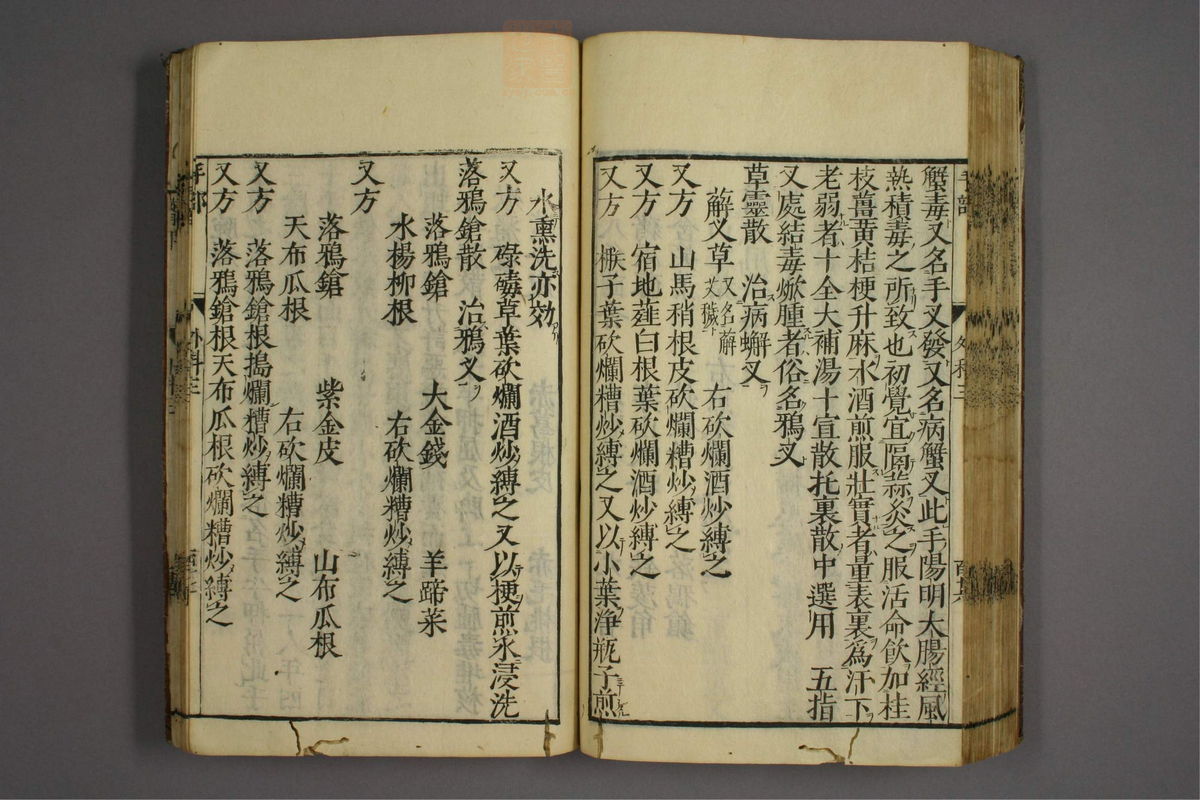 蟹毒又名手叉發又名病蟹叉此手陽明大腸經風
熱積毒之所致也初覺宜隔蒜灸之服活命飲加桂
枝薑黃桔梗升麻水酒煎服壯實者量表裏為汗下
老弱者十全大補湯十宣散托裏散中選用 五指
叉處結毒焮腫者俗名鴉叉
草靈散 治病蠏叉
薢义草 又名薢艾穢 右砍爛酒炒縛之
又方 山馬稍根皮砍爛糟炒縛之
又方 宿地薤白根葉砍爛酒炒縛之
又方 楸子葉砍爛糟炒縛之又以小葉淨瓶子煎
水熏洗亦効
又方 碌磚草葉砍爛酒炒縛之又以梗煎水浸洗
落鴉鎗散 治鴉叉
落鴉鎗 大金錢 羊蹄菜
水楊柳根 右砍爛糟炒縛之
又方
落鴉鎗 紫金皮 山布瓜根
天布瓜根 右砍爛糟炒縛之
又方 落鴉鎗根搗爛糟炒縛之
又方 落鴉鎗根天布瓜根砍爛糟炒縛之
手部 外科三